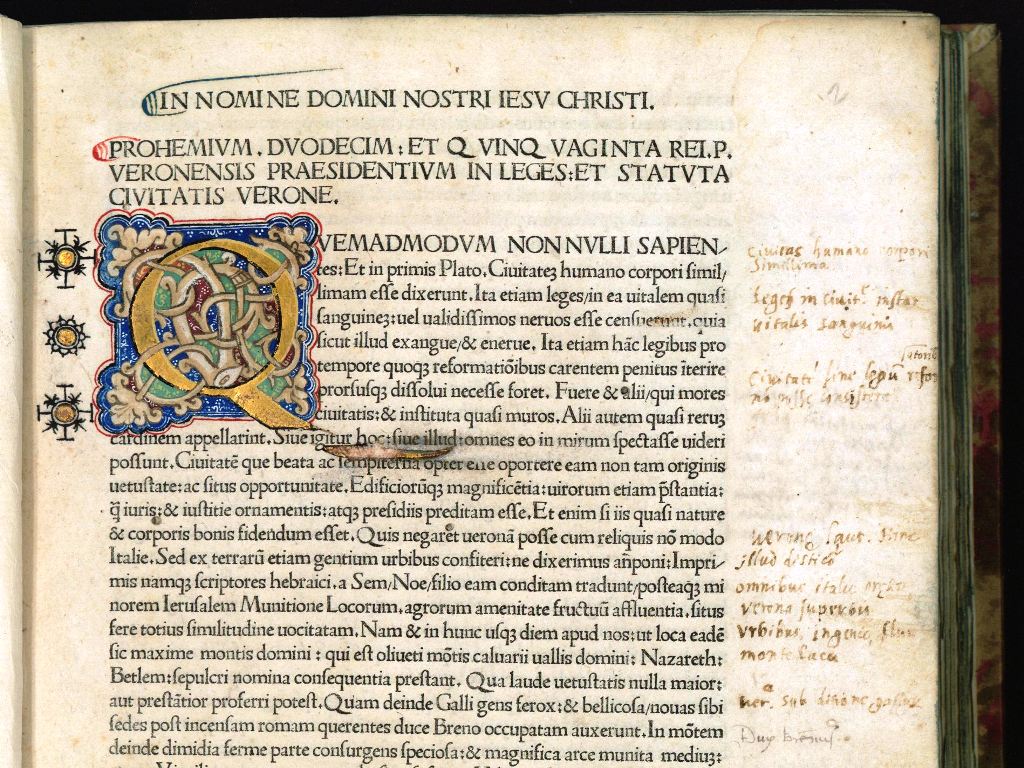 IN NOMINE DOMINI NOSTRI IESV CHRISTI.
PROHEMIVM. DVODECIM: ET QVINQVAGINTA REI.P.
VERONENSIS PRAESIDENTIVM IN LEGES: ET STATVTA
CIVITATIS VERONE.
QVEMADMODVM NONNVLLI SAPIEN⸗
tes: Et in primis Plato. Ciuitateꝫ humano corpori simil/
limam esse dixerunt. Ita etiam leges/in ea uitalem quasi
sanguineꝫ: uel ualidissimos neruos esse censuerunt. quia
sicut illud exangue/& enerue. Ita etiam hāc legibus pro
tempore quoqꝫ reformatiōibus carentem penitus īterire
prorsusqꝫ dissolui necesse foret. Fuere & alii/qui mores
ciuitatis: & instituta quasi muros. Alii autem quasi reruꝫ
cardinem appellarint. Siue igitur hoc: siue illud: omnes eo in mirum spectasse uideri
possunt. Ciuitatē que beata ac sempiterna oporteat eam non tam originis
uetustate: ac situs opportunitate. Edificiorūqꝫ magnificētia: uirorum etiam p̄stantia:
q̄ iuris: & iustitie ornamentis: atqꝫ presidiis preditam esse. Et enim si iis quasi nature
& corporis bonis fidendum esset. Quis negaret ueronā posse cum reliquis nō modo
Italie. Sed ex terrarū etiam gentium urbibus confiteri: ne dixerimus añponi: Impri⸗
mis namqꝫ scriptores hebraici. a Sem/Noe/filio eam conditam tradunt/posteaqꝫ mi
norem Ierusalem Munitione Locorum. agrorum amenitate fructuū affluentia. situs
fere totius similitudine uocitatam. Nam & in hunc usqꝫ diem apud nos: ut loca eadē
sic maxime montis domini: qui est oliueti mōtis caluarii uallis domini: Nazareth:
Betlem: sepulcri nomina consequentia prestant. Qua laude uetustatis nulla maior:
aut prestātior proferri potest. Quam deinde Galli gens ferox: & bellicosa/nouas sibi
sedes post incensam romam querentes duce Breno occupatam auxerunt. In mōtem
deinde dimidia ferme parte consurgens speciosa: & magnifica arce munita mediuꝫ:
ciuitas humano corpori
simillima
leges in ciuit. instar
uitalis sanguinis
ciuitatē sine legum refor
no posse consistere
illud disticō
omnibus italie
verona superbis
vrbibus, ingenio,
monte lacu
Dux brenus